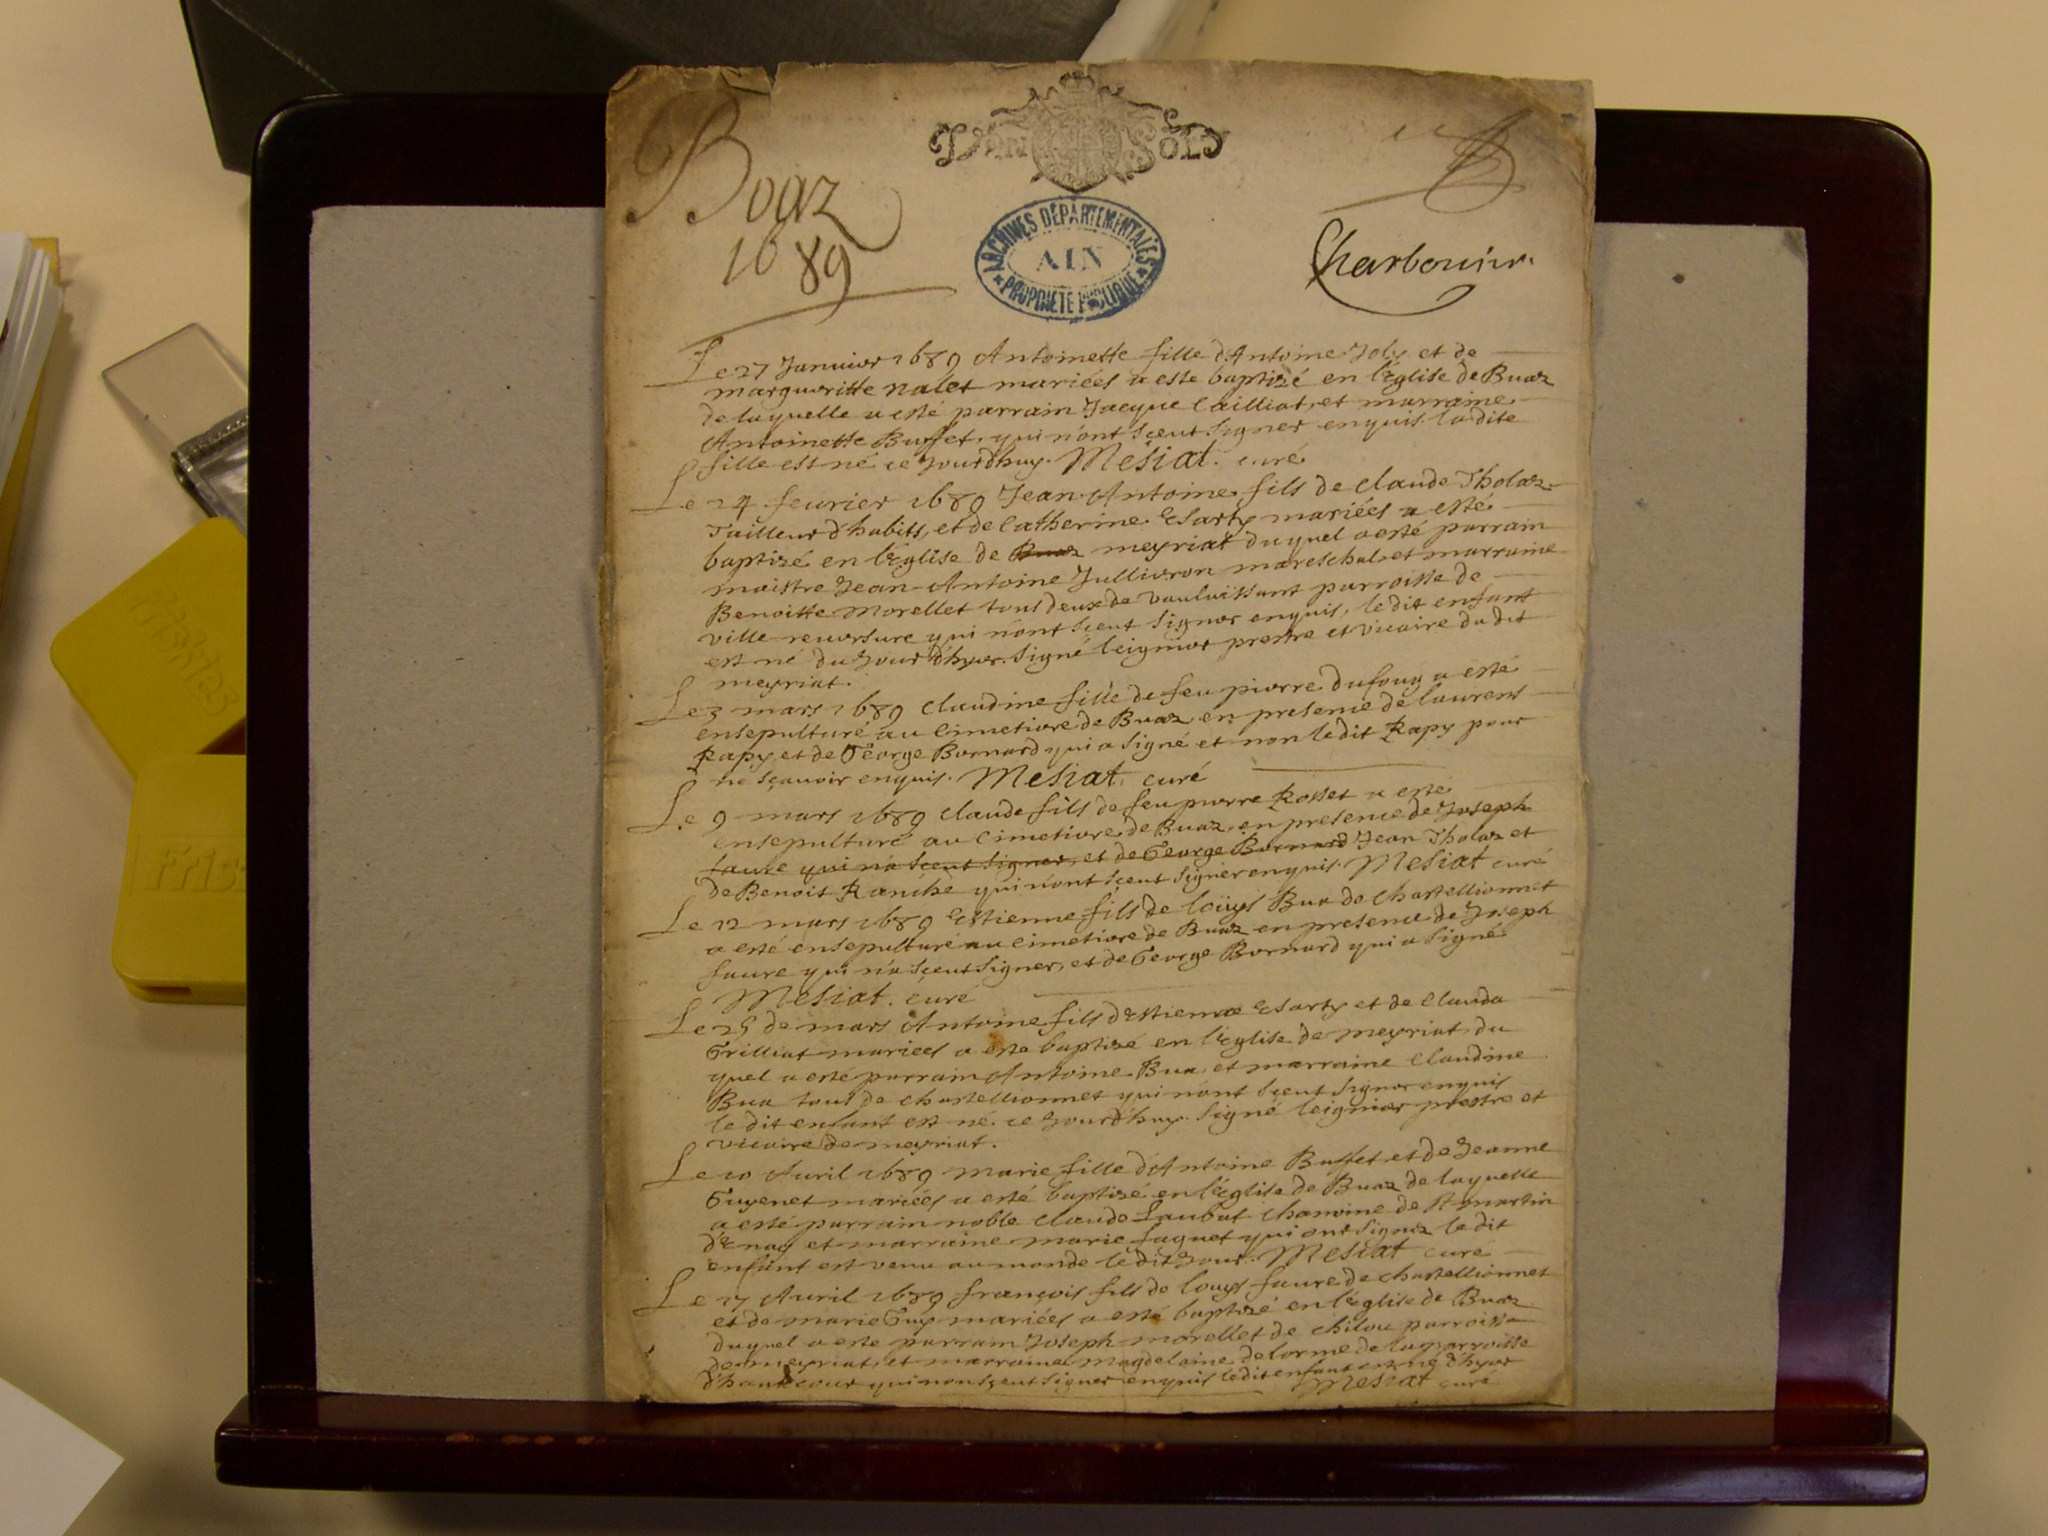 Bogz
1689
VN SOLD
ARCHIVES DÉPARTEMENTALES
AIN
PROPRIÉTÉ PUBLIQUE
Charbonier
Le 27 Januier 1689 Antoinette fille d'Antoine Joly et de
margueritte nalet mariées a esté baptizé en l'église de Buaz
de laquelle a esté parrain Jacque Cailliat, et marraine
Antoinette Buffet, qui n'ont sçeut signer enquis. ladite
fille est né ce jourdhuy. Mesiat. curé
Le 24 feurier 1689 Jean-Antoine fils de claude Tholaz
Tailleur d'habits, et de Catherine Esarty mariées a esté
baptizé en l'église de Buaz meyriat duquel a esté parrain
maistre Jean-Antoine Jullieron mareschal, et marraine
Benoitte Morellet tous deux de Vauluissant parroisse de
ville reuersure qui n'ont sçeut signer enquis, ledit enfant
est né du jour d'hyer. signé leignier prestre et vicaire du dit
meyriat.
Le 3 mars 1689 claudine fille de feu pierre dufour a esté
ensepulturé au cimetiere de Buaz en presence de laurent
Rapy et de George Bornard qui a signé et non ledit Rapy pour
ne sçauoir enquis. Mesiat. curé
Le 9 mars 1689 claude fils de feu pierre Rosset a esté
ensepulturé au cimetiere de Buaz, en presence de Joseph
faure qui n'a sçeut signer, et de George Bornard Jean Tholaz et
de Benoit Ranche qui n'ont sçeut signer enquis. Mesiat curé
Le 12 mars 1689 Estienne fils de loüys Bua de chastellionnet
a esté ensepulturé au cimetiere de Buaz en presence de Joseph
faure qui n'a sçeut signer, et de George Bornard qui a signé
Mesiat. curé
Le 25 de mars Antoine fils d'Estienne Esarty et de Clauda
Trilliat mariées a esté baptizé en l'église de meyriat du
quel a esté parrain Antoine Bua, et marraine Claudine
Bua tous de chastellionnet qui n'ont sçeut signer enquis
le dit enfant est né ce jourd'huy. signé leignier prestre et
vicaire de meyriat.
Le 10 Auril 1689 marie fille d'Antoine Buffet et de Jeanne
Guyenet mariées a esté baptizé en l'église de Buaz de laquelle
a esté parrain noble claude chanoine de St martin
d'Enay et marraine marie faguet qui ont signez le dit
enfant est venu au monde le dit jour. Mesiat curé
Le 17 Auril 1689 françois fils de louys faure de chastellionnet
et de marie Guy mariées a esté baptizé en l'église de Buaz
duquel a este parrain Joseph morellet de chilou parroisse
de meyriat, et marraine magdelaine delorme de la parroisse
d'hautecour qui n'ont sçeut signer enquis le dit enfant est né d'hyer
Mesiat curé